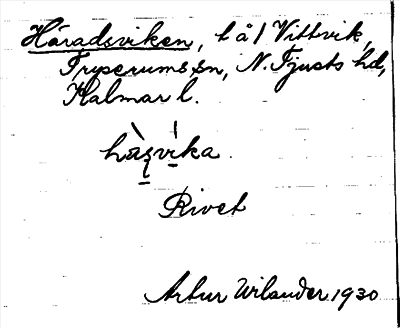 Häradsviken, t å l Vittvik,
Tryserums sn, N. Tjusts hd,
Kalmar l.
hàʂvíka.
Rivet
Artur Wilander 1930